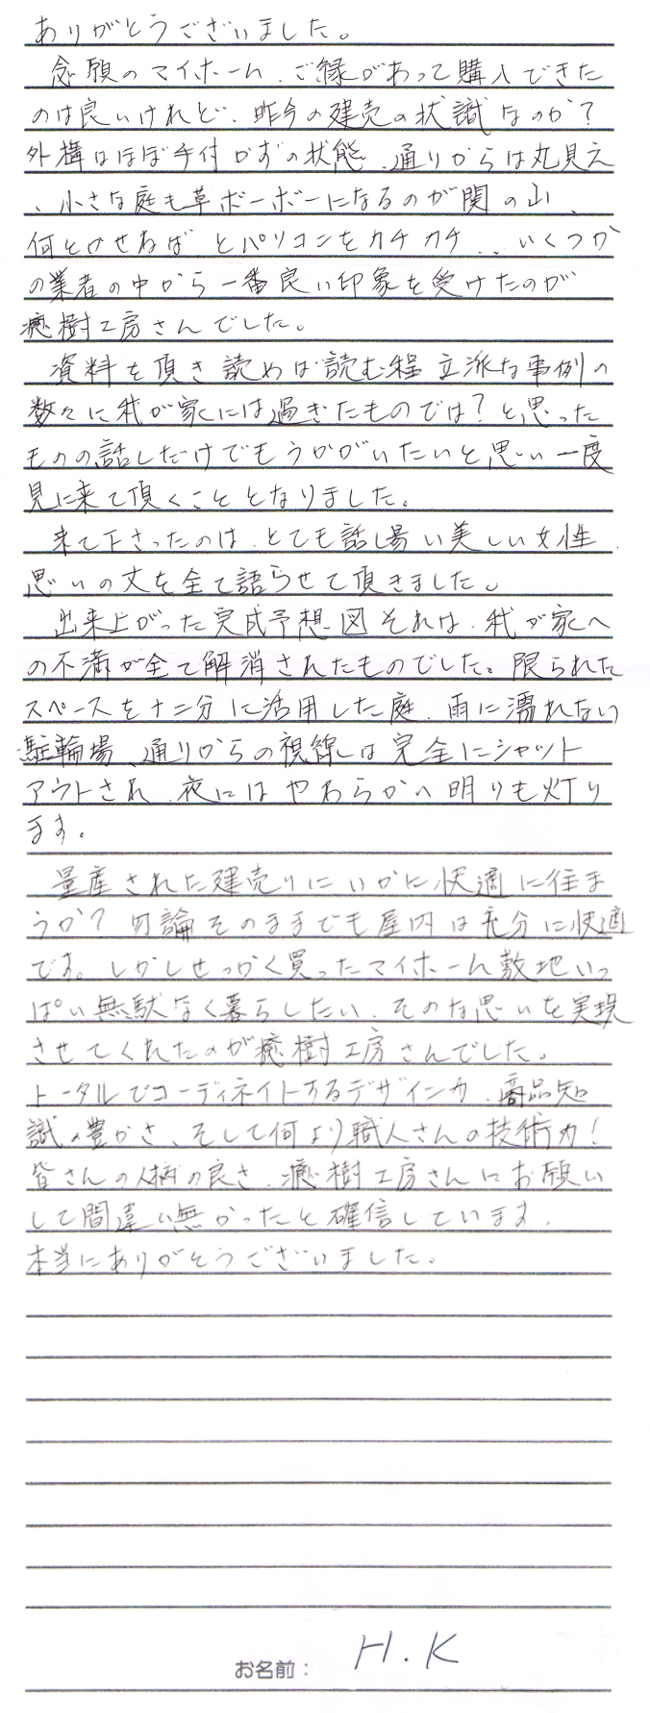 ありがとうございました。
念願のマイホーム、ご縁があって購入できた
のは良いけれど、昨今の建売の状識なのか?
外構はほぼ手付かずの状態、通りからは丸見え
、小さな庭も草ボーボーになるのが関の山、
何とかせねばとパソコンをカチカチ、、いくつか
の業者の中から一番良い印象を受けたのが
癒樹工房さんでした。
資料を頂き読めば読む程立派な事例の
数々に我が家には過ぎたものでは?と思った
ものの話しだけでもうかがいたいと思い一度
見に来て頂くこととなりました。
来て下さったのは、とても話し易い美しい女性、
思いの丈を全て語らせて頂きました。
出来上がった完成予想図それは、我が家へ
の不満が全て解消されたものでした。限られた
スペースを十二分に活用した庭、雨に濡れない
駐輪場、通りからの視線は完全にシャット
アウトされ、夜にはやわらかへ明りも灯り
ます。
量産された建売りにいかに快適に住ま
うか?勿論そのままでも屋内は充分に快適
です。しかしせっかく買ったマイホーム敷地いっ
ぱい無駄なく暮らしたい、そのな思いを実現
させてくれたのが癒樹工房さんでした。
トータルでコーディネイトするデザイン力、商品知
識の豊かさ、そして何より職人さんの技術力!
皆さんの人柄の良さ、癒樹工房さんにお願い
して間違い無かったと確信しています。
本当にありがとうございました。
お名前: H.K